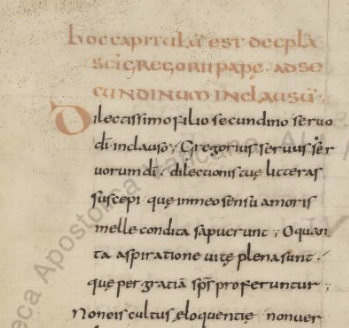 hoc capitulū est de eplā
sci gregorii pape. ad se
cundinum inclausū.
Dilectissimo filio secundino seruo
dī incluso; Gregorius seruus ser
uorum dī; dilectionis tuę litteras
suscepi que in meo sensu amoris
melle condita sapuerunt; O quan
ta aspiratione uite plena sunt.
que per gratiā sp̄s proferuntur;
Non eis cultus eloquentię non uer